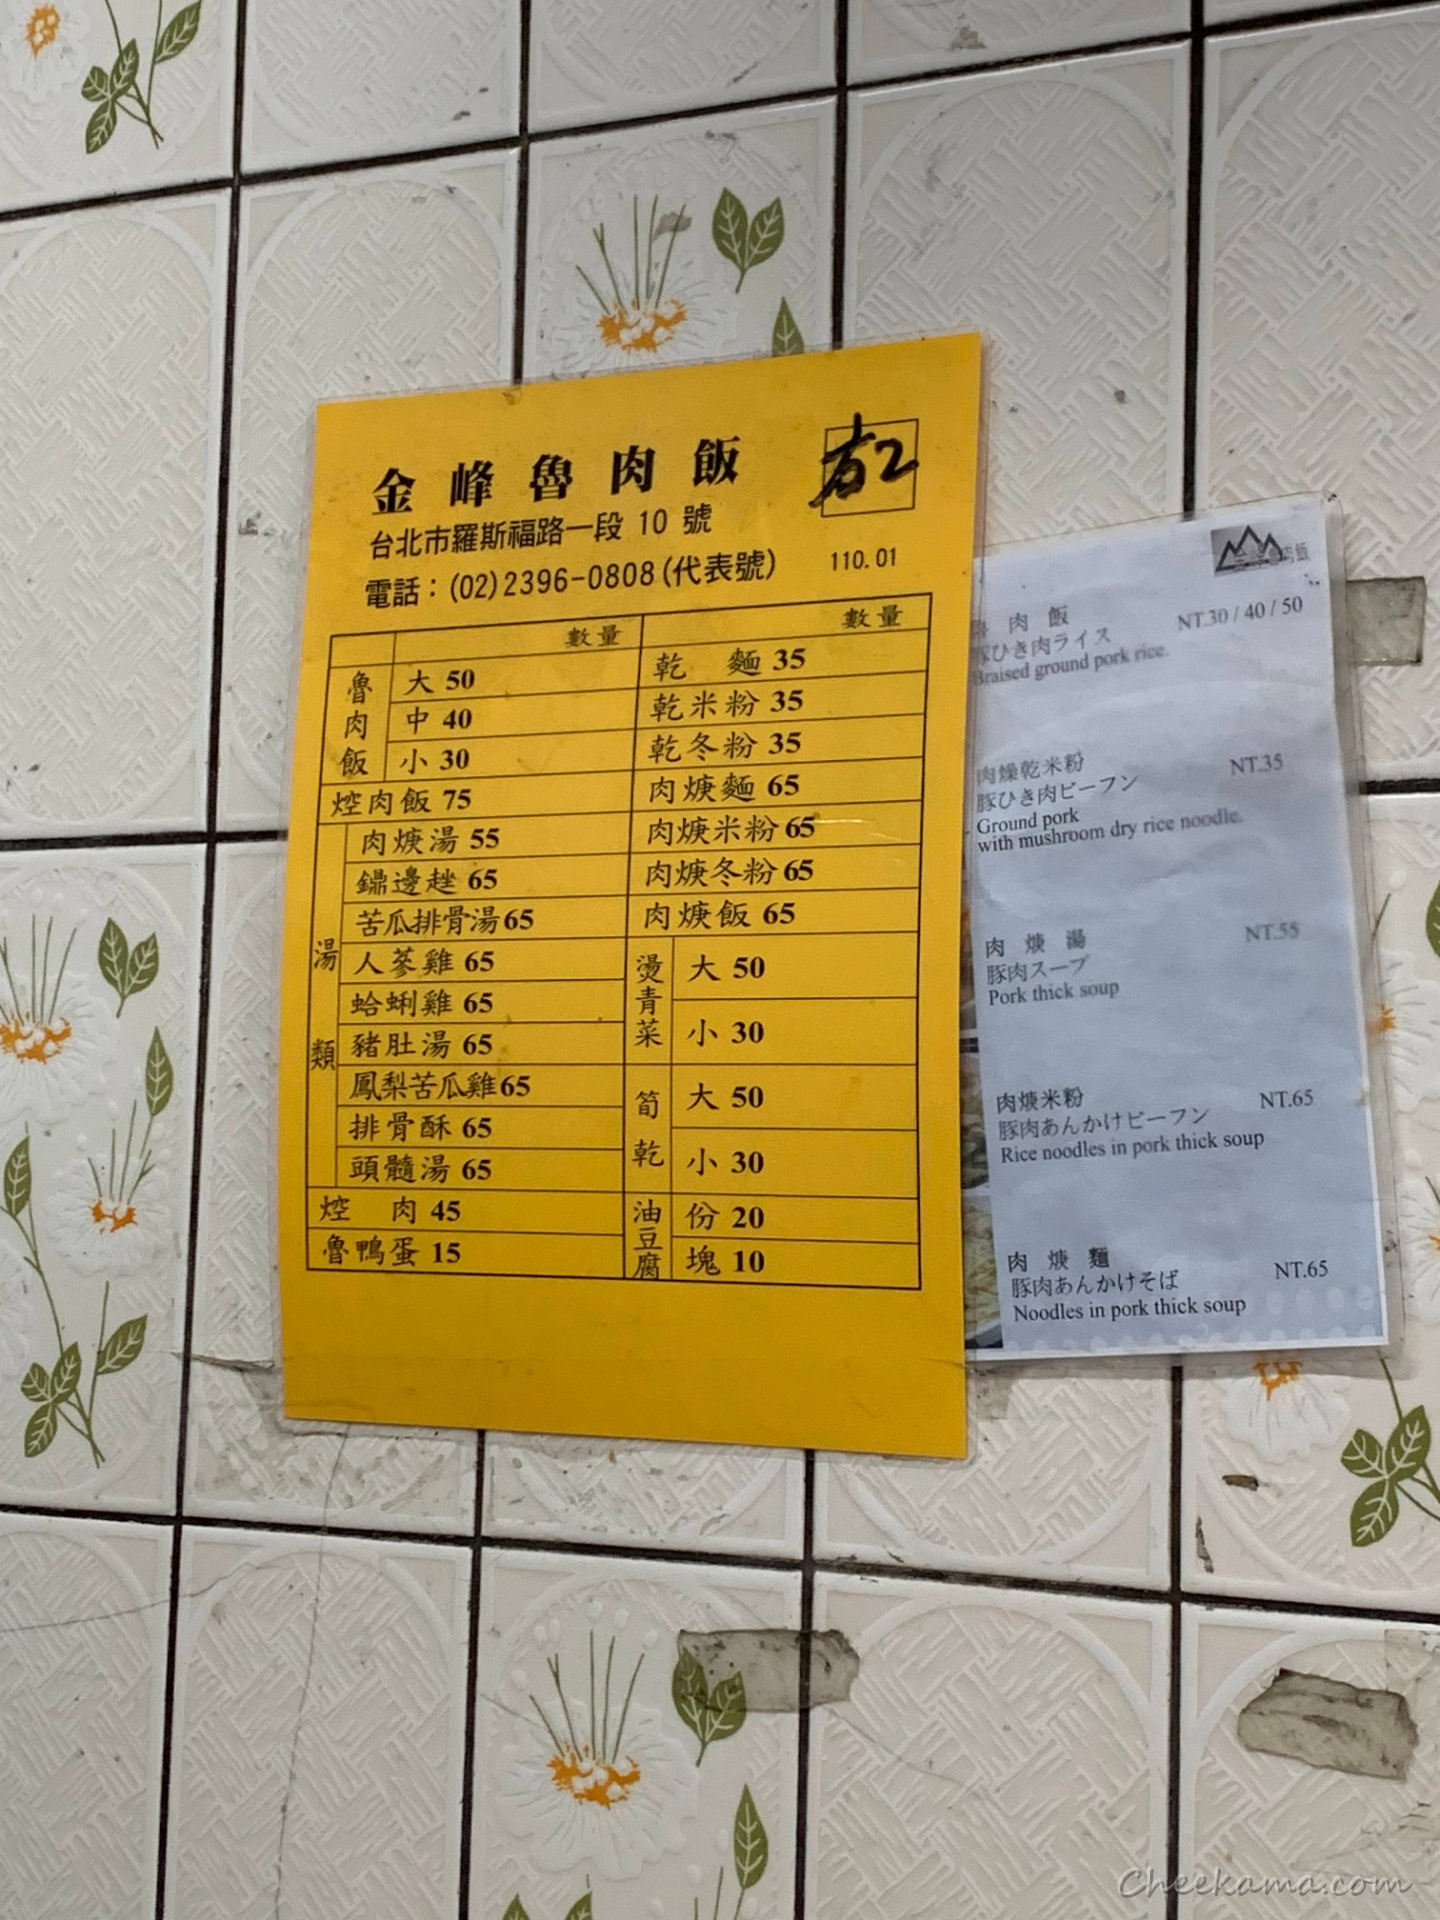 金峰魯肉飯
台北市羅斯福路一段 10 號
電話：(02)2396-0808(代表號)
右2
110.01
數量
魯肉飯
大 50
中 40
小 30
焢肉飯 75
湯類
肉焿湯 55
鼎邊趖 65
苦瓜排骨湯 65
人蔘雞 65
蛤蜊雞 65
豬肚湯 65
鳳梨苦瓜雞 65
排骨酥 65
頭髓湯 65
焢 肉 45
魯鴨蛋 15
數量
乾 麵 35
乾米粉 35
乾冬粉 35
肉焿麵 65
肉焿米粉 65
肉焿冬粉 65
肉焿飯 65
燙青菜
大 50
小 30
筍乾
大 50
小 30
油豆腐
份 20
塊 10
肉飯
肉 飯 NT.30 / 40 / 50
豚ひき肉ライス
Braised ground pork rice.
肉燥乾米粉 NT.35
豚ひき肉ビーフン
Ground pork
with mushroom dry rice noodle.
肉 焿 湯 NT.55
豚肉スープ
Pork thick soup
肉焿米粉 NT.65
豚肉あんかけビーフン
Rice noodles in pork thick soup
肉 焿 麵 NT.65
豚肉あんかけそば
Noodles in pork thick soup
Cheekama.com